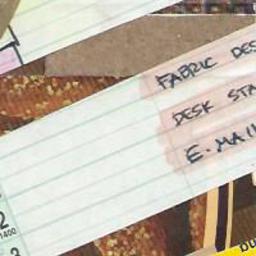 FABRIC DES
DESK STA
E.MAI
2
1400